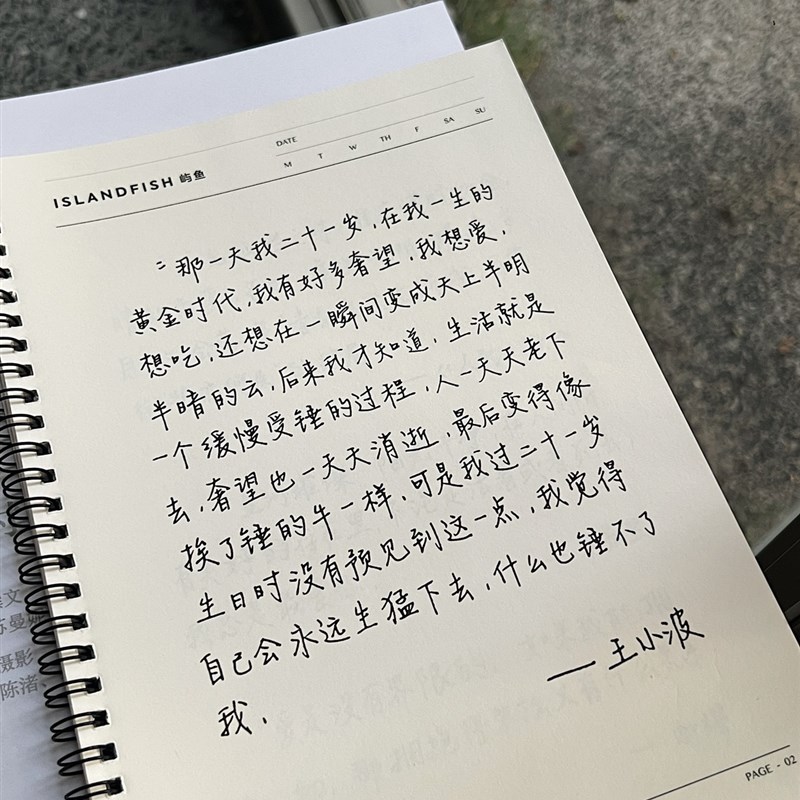 DATE
M T W TH F SA SU
ISLANDFISH 屿鱼
：那一天我二十一岁，在我一生的
黄金时代，我有好多奢望，我想爱，
想吃，还想在一瞬间变成天上半明
半暗的云，后来我才知道，生活就是
一个缓慢受锤的过程，人一天天老下
去，奢望也一天天消逝，最后变得像
挨了锤的牛一样，可是我过二十一岁
生日时没有预见到这一点，我觉得
自己会永远生猛下去，什么也锤不了
我．
—— 王小波
PAGE - 02
苏曼
摄影
陈渚、